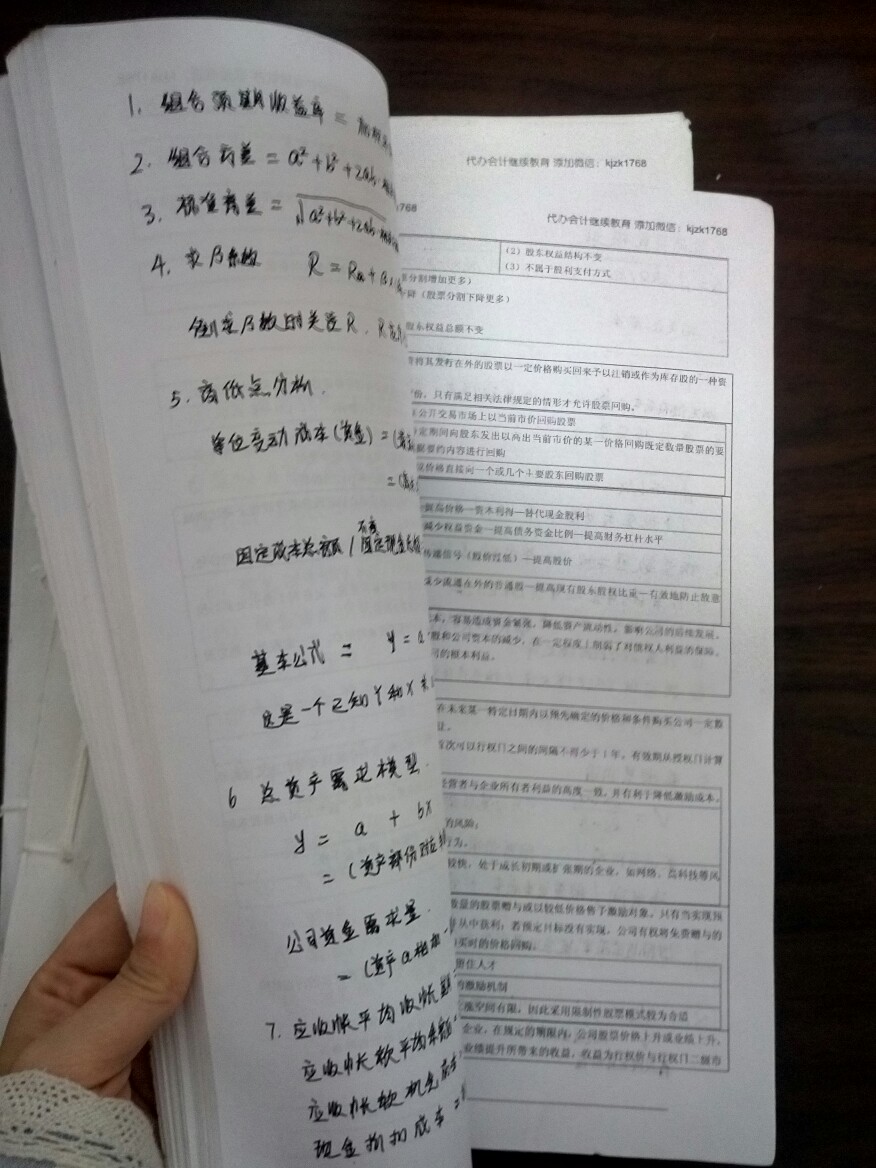 1. 组合预期收益率 =
2. 组合方差 = a² + b² + 2ab
3. 标准离差 = √a²+b²+2ab
4. 求β系数 R = R
5. 高低点分析.
单位变动成本(资金) =
=
固定成本总额/
基本公式 = y = a
这是一个已知Y和X
6 总资产需求模型.
y = a + bx
= (资产部份
公司资金需求量.
= (资产a相加
7. 应收帐平均收帐
应收帐款平均余额
应收帐款机会成本
现金折扣成本 =
代办会计继续教育 添加微信：kjzk1768
768
代办会计继续教育 添加微信：kjzk1768
（2）股东权益结构不变
（3）不属于股利支付方式
票分割增加更多）
降（股票分割下降更多）
股东权益总额不变
将其发行在外的股票以一定价格购买回来予以注销或作为库存股的一种资
份，只有满足相关法律规定的情形才允许股票回购。
公开交易市场上以当前市价回购股票
定期间向股东发出以高出当前市价的某一价格回购既定数量股票的要
要约内容进行回购
价格直接向一个或几个主要股东回购股票
提高价格—资本利得—替代现金股利
减少权益资金—提高债务资金比例—提高财务杠杆水平
传递信号（股价过低）—提高股价
减少流通在外的普通股—提高现有股东股权比重—有效地防止敌意
本，容易造成资金紧张，降低资产流动性，影响公司的后续发展。
股和公司资本的减少，在一定程度上削弱了对债权人利益的保障。
司的根本利益。
在未来某一特定日期内以预先确定的价格和条件购买公司一定数
首次可以行权日之间的间隔不得少于1年，有效期从授权日计算
经营者与企业所有者利益的高度一致，并有利于降低激励成本。
的风险；
行为。
较快，处于成长初期或扩张期的企业，如网络、高科技等风
数量的股票赠与或以较低价格售予激励对象，只有当实现预
并从中获利；若预定目标没有实现，公司有权将免费赠与的
买时的价格回购。
留住人才
的激励机制
涨空间有限，因此采用限制性股票模式较为合适
企业，在规定的期限内，公司股票价格上升或业绩上升，
业绩提升所带来的收益，收益为行权价与行权日二级市